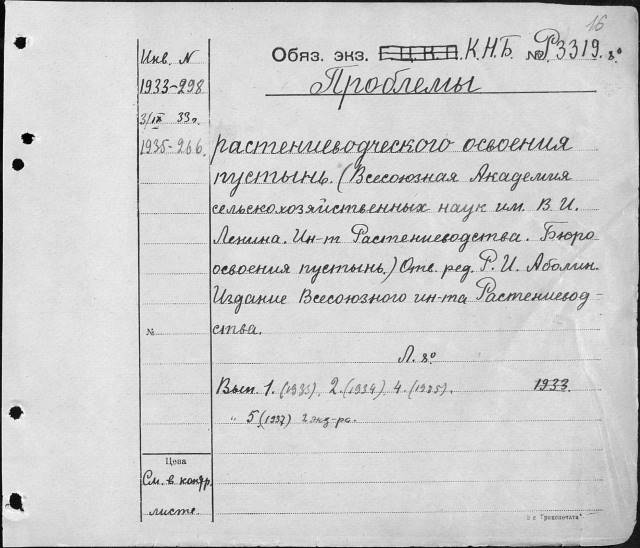 16
Обяз. экз. Г.Ц.К.П. К.Н.Б. № Р3319. 8º
Проблемы
Инв. N
1933-298
3/IX 33г.
1935-266.
растениеводческого освоения
пустынь. (Всесоюзная Академия
сельскохозяйственных наук им. В. И.
Ленина. Ин-т Растениеводства. Бюро
освоения пустынь.) Отв. ред. Р. И. Аболин.
Издание Всесоюзного ин-та Растениевод-
ства.
№
Л. 8º
Вып. 1. (1933). 2. (1934) 4. (1935). 1933.
" 5 (1937) 2 экз-ра.
Цена
См. в контр.
листе.